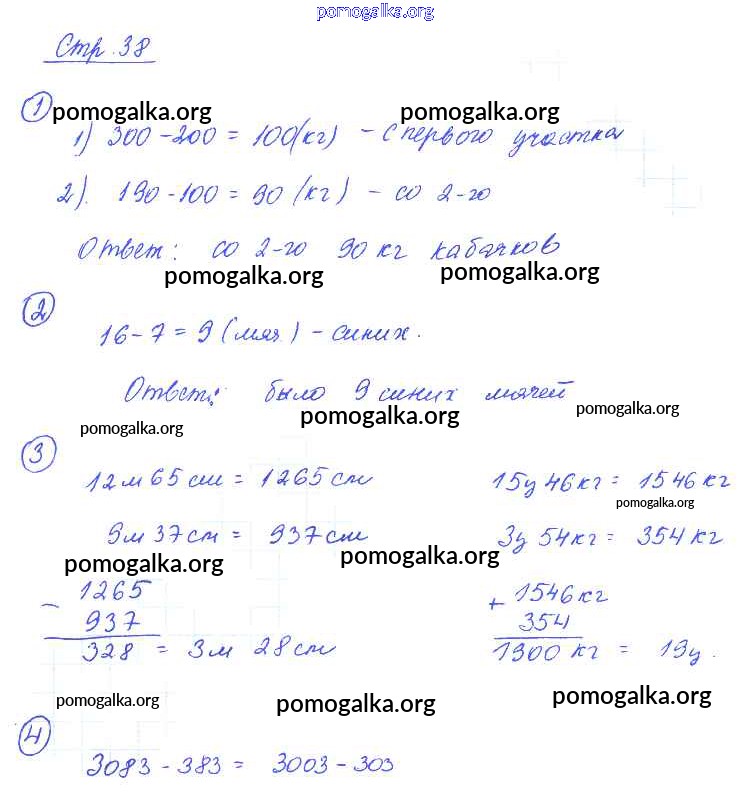 pomogalka.org
Стр. 38
1 pomogalka.org pomogalka.org
1) 300 - 200 = 100 (кг) - с первого участка
2). 190 - 100 = 90 (кг) - со 2-го
Ответ: со 2-го 90 кг кабачков
pomogalka.org pomogalka.org
2
16 - 7 = 9 (мяч.) - синих.
Ответ: было 9 синих мячей
pomogalka.org pomogalka.org pomogalka.org
3
12 м 65 см = 1265 см 15ц 46кг = 1546 кг
pomogalka.org
9м 37 см = 937 см 3ц 54кг = 354 кг
pomogalka.org pomogalka.org
- 1265 + 1546 кг
937 354
328 = 3м 28 см 1900 кг = 19ц.
pomogalka.org pomogalka.org pomogalka.org
4
3083 - 383 = 3003 - 303